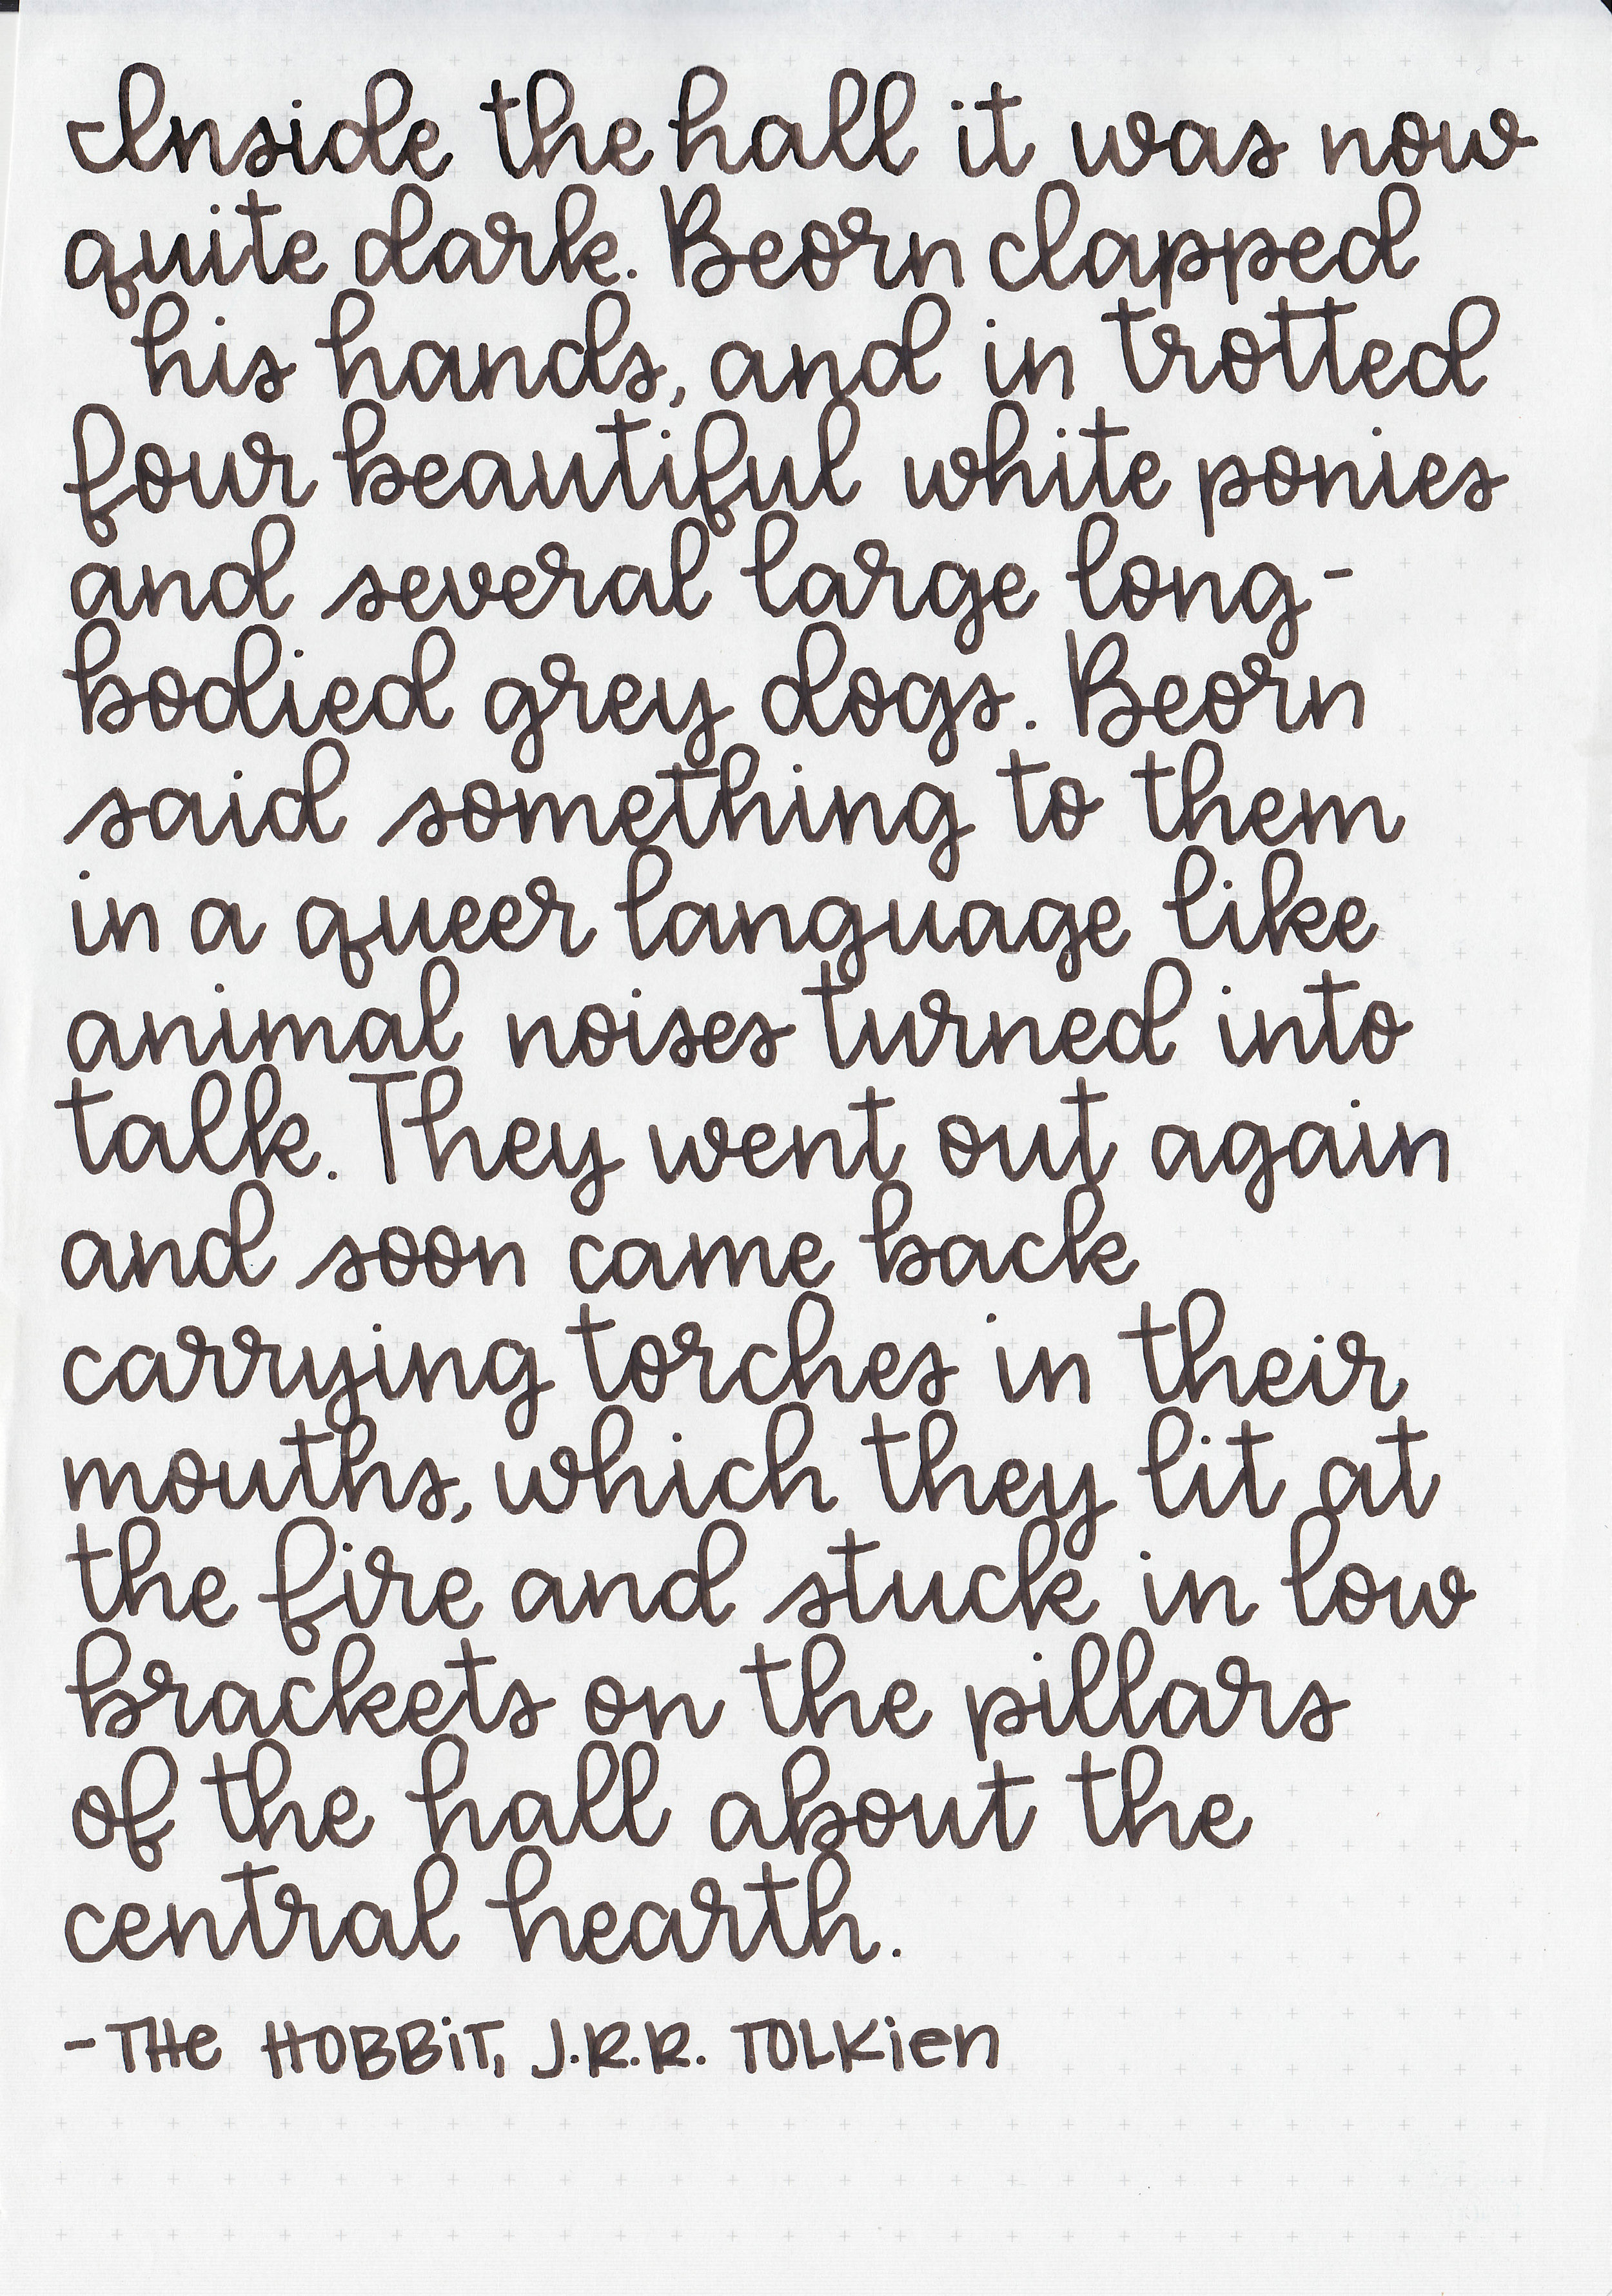 Inside the hall it was now
quite dark. Beorn clapped
his hands, and in trotted
four beautiful white ponies
and several large long-
bodied grey dogs. Beorn
said something to them
in a queer language like
animal noises turned into
talk. They went out again
and soon came back
carrying torches in their
mouths, which they lit at
the fire and stuck in low
brackets on the pillars
of the hall about the
central hearth.
-THe HOBBiT, J.R.R. TOLKien